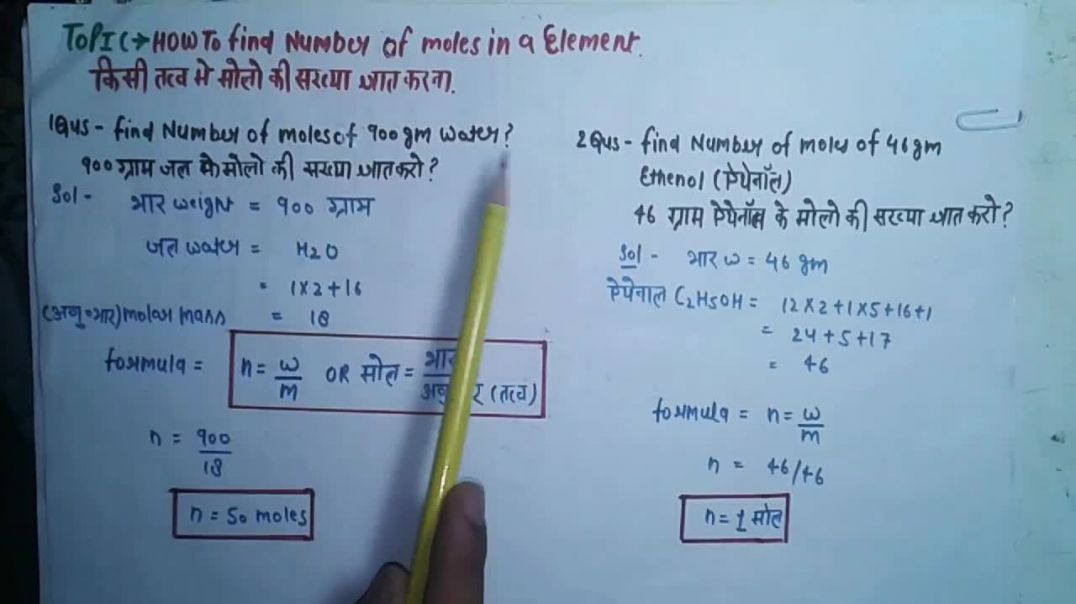 TOPIC→HOW TO find Number of moles in a Element.
किसी तत्व मे मोलो की सख्या ज्ञात करना.
1Qus - find Number of moles of 900 gm water?
900 ग्राम जल के मोलो की सख्या ज्ञात करो?
Sol - भार weight = 900 ग्राम
जल water = H2O
= 1×2+16
(अणुभार) molar mass = 18
formula = n = w/m OR मोल = भार (तत्व)
n = 900/18
n = 50 moles
2Qus - find Number of moles of 46 gm
Ethenol (ऐथेनॉल)
46 ग्राम ऐथेनॉल के मोलो की सख्या ज्ञात करो?
Sol - भार w = 46 gm
ऐथेनाल C2H5OH = 12×2+1×5+16+1
= 24+5+17
= 46
formula = n = w/m
n = 46/46
n = 1 मोल